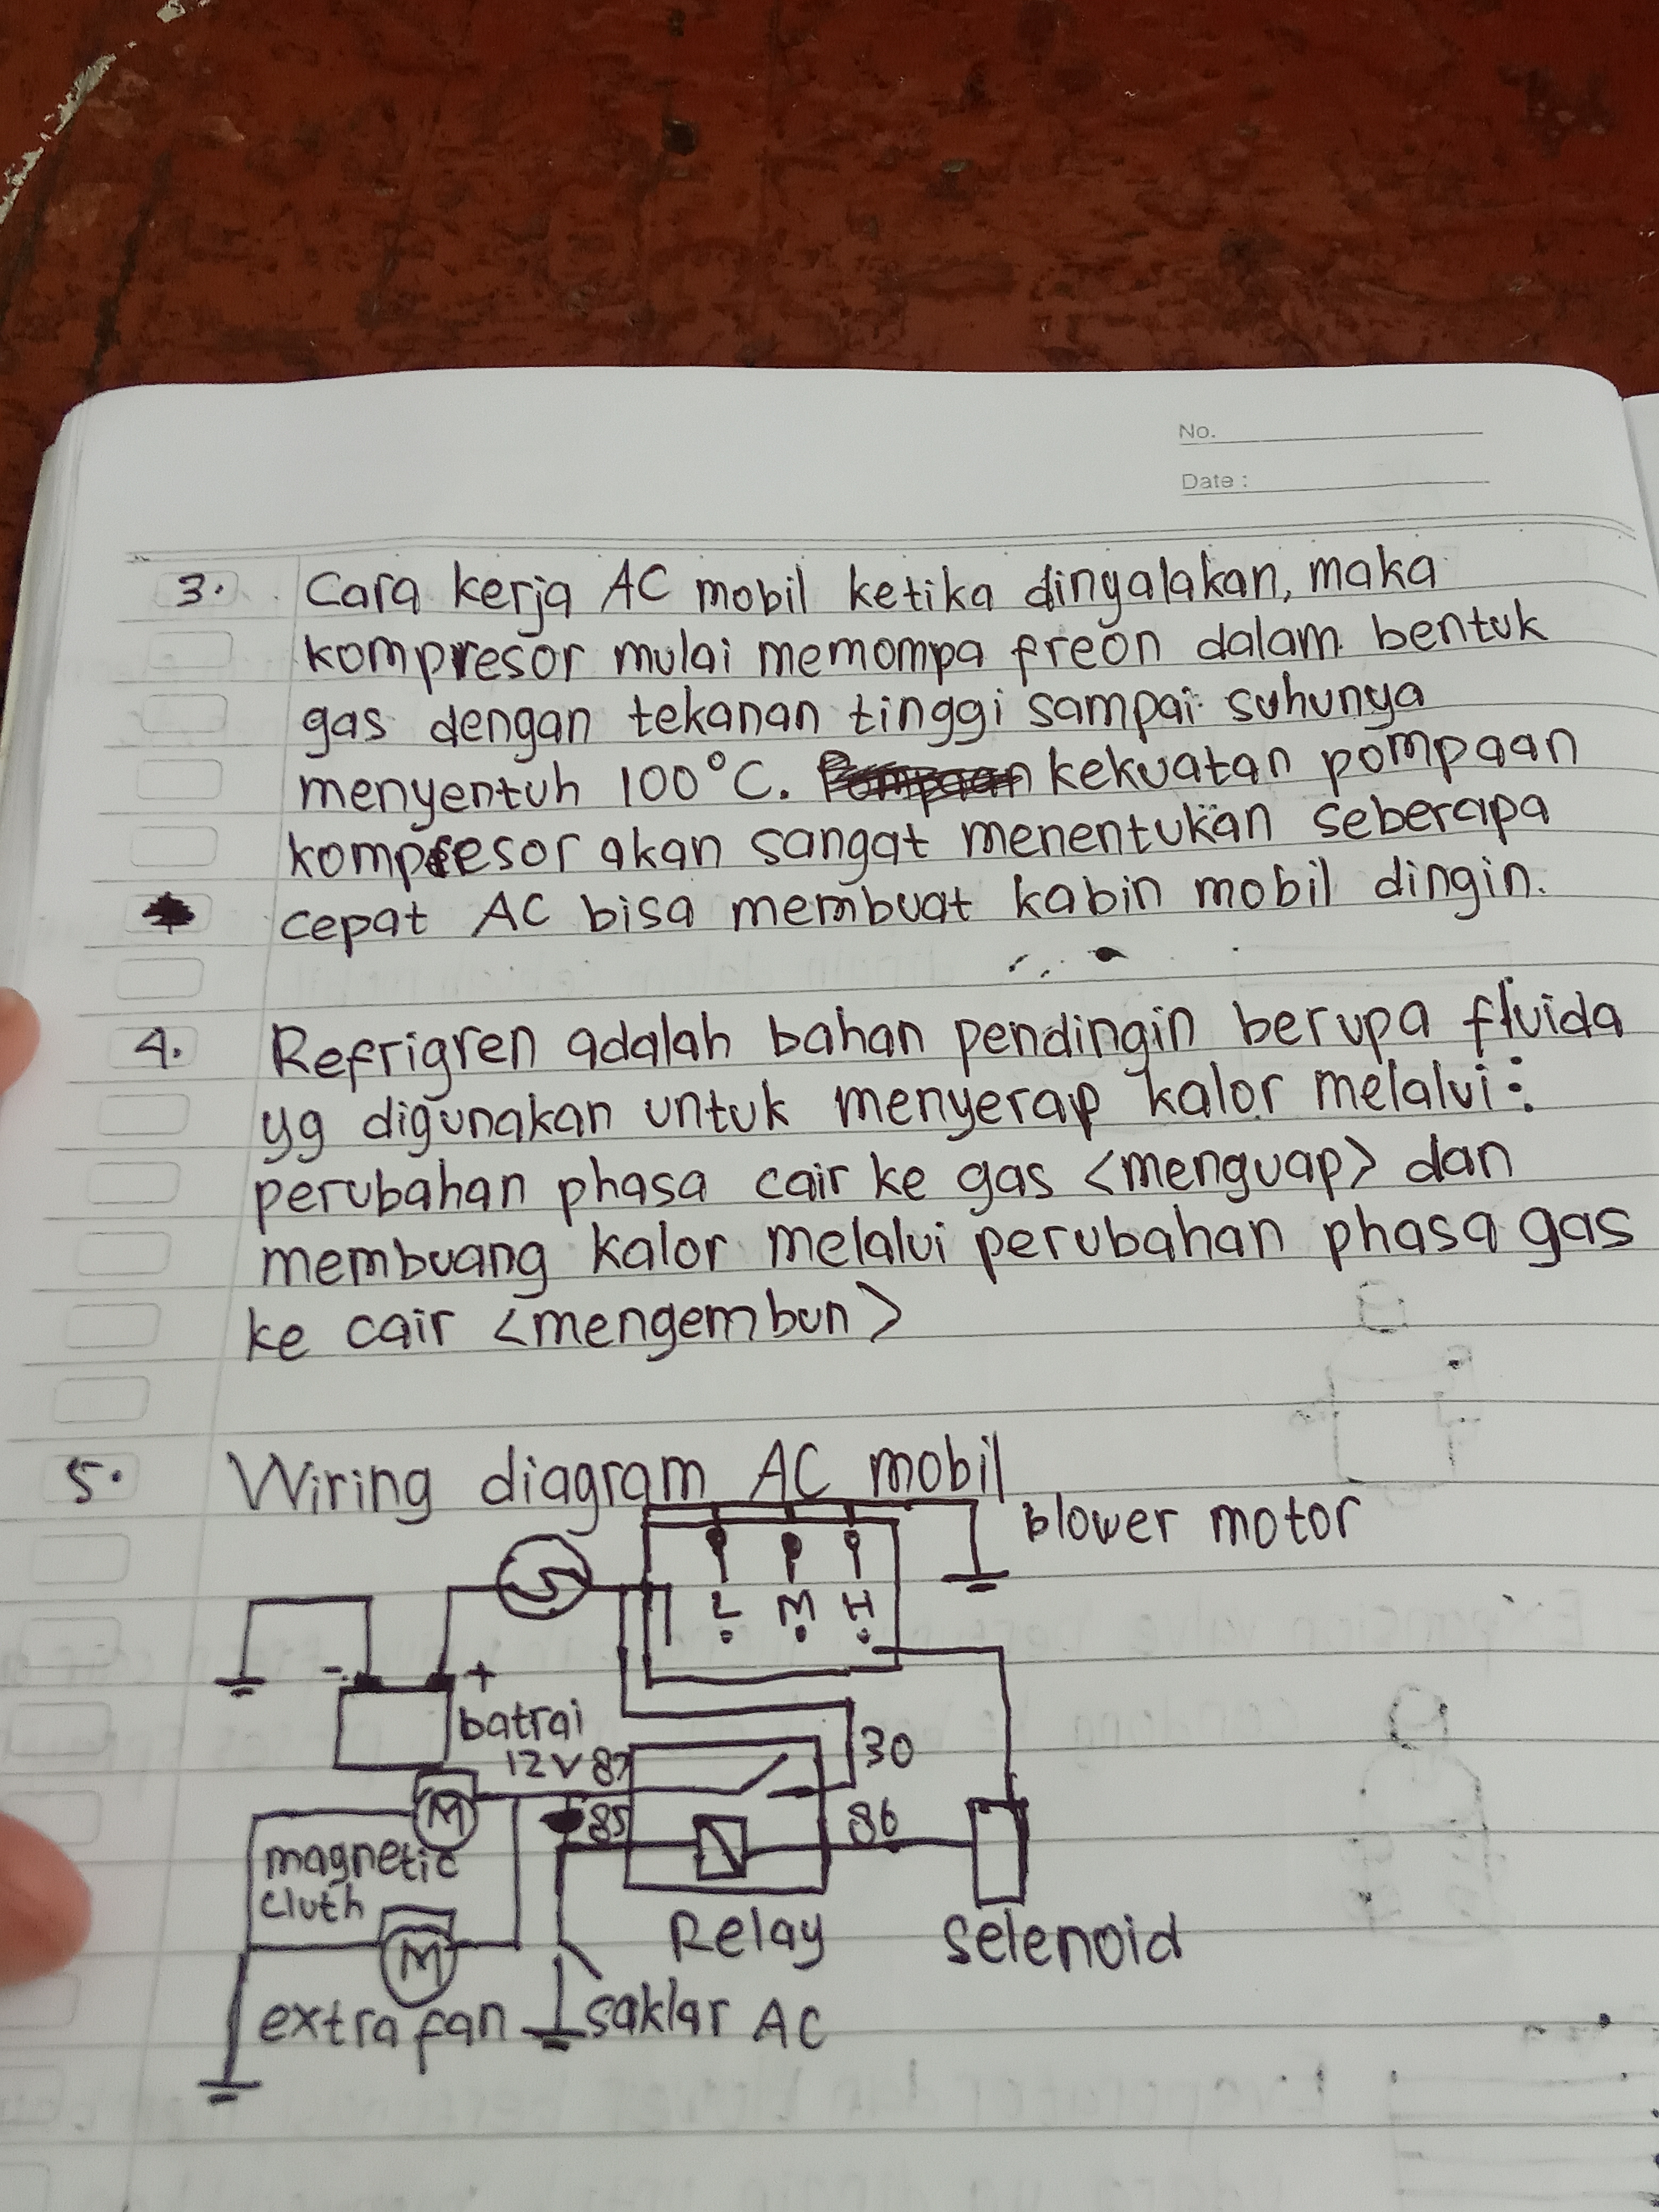 No.
Date :
3. Cara kerja AC mobil ketika dinyalakan, maka
kompresor mulai memompa freon dalam bentuk
gas dengan tekanan tinggi sampai suhunya
menyentuh 100°C. Pompaan kekuatan pompaan
kompresor akan sangat menentukan seberapa
cepat AC bisa membuat kabin mobil dingin.
4. Refrigren adalah bahan pendingin berupa fluida
yg digunakan untuk menyerap kalor melalui :
perubahan phasa cair ke gas <menguap> dan
membuang kalor melalui perubahan phasa gas
ke cair <mengembun>
5. Wiring diagram AC mobil
blower motor
L M H
- +
batrai
12V 87
30
85
86
M
magnetic
cluth
Relay
Selenoid
M
extra fan
saklar AC